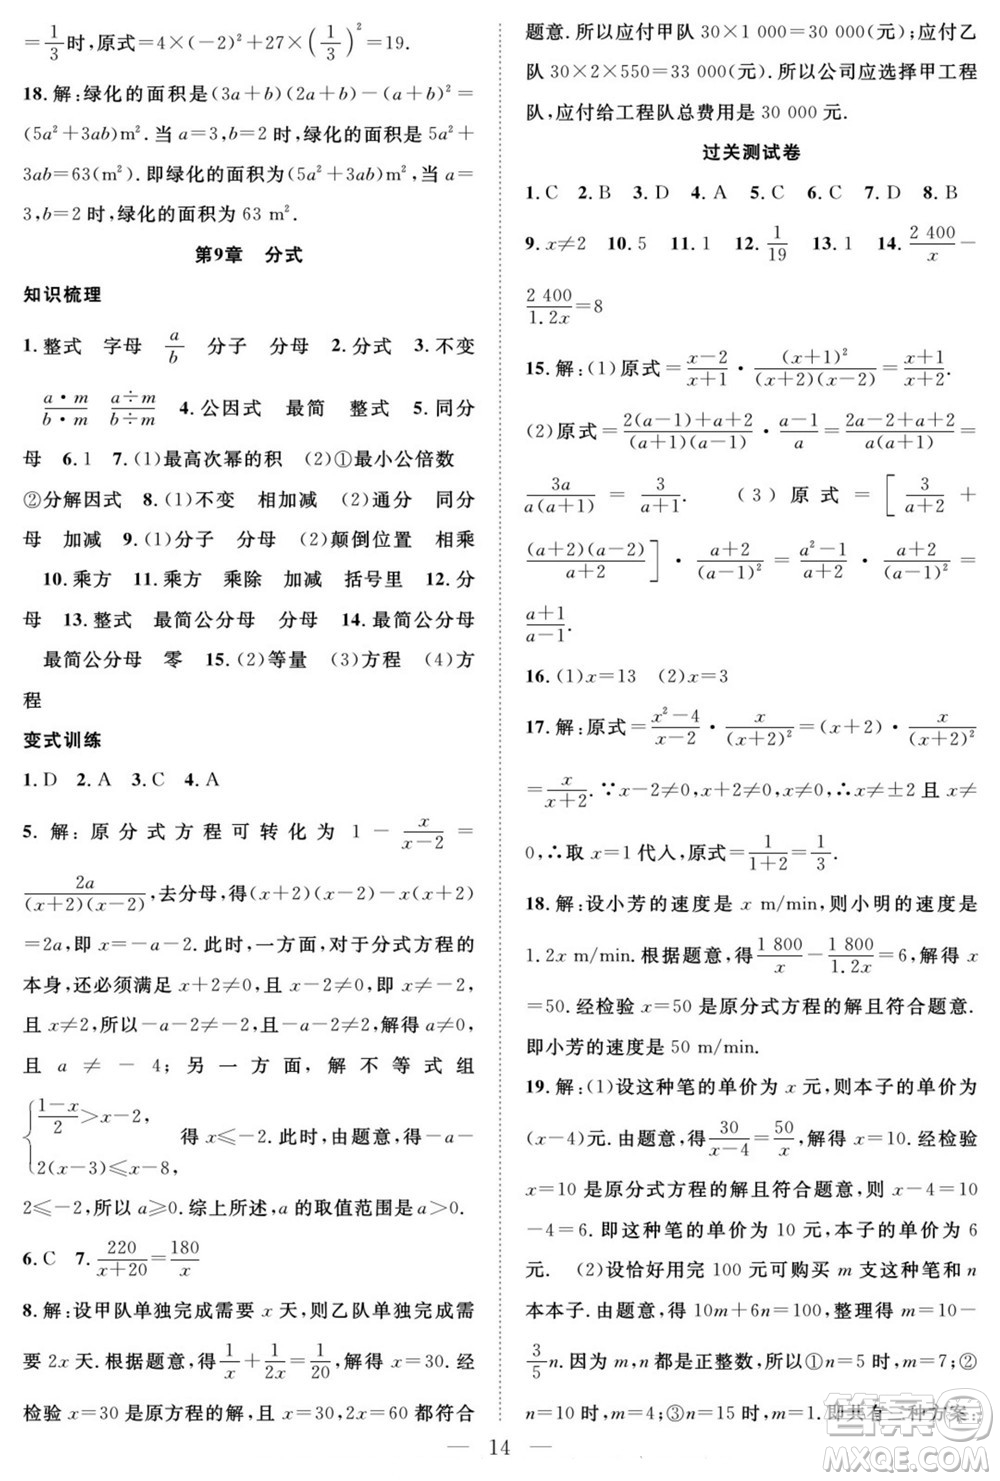 =1/3时,原式=4×(-2)²+27×(1/3)²=19.
18.解:绿化的面积是(3a+b)(2a+b)-(a+b)²=
(5a²+3ab)m².当 a=3,b=2 时,绿化的面积是 5a²+
3ab=63(m²).即绿化的面积为(5a²+3ab)m²,当 a=
3,b=2 时,绿化的面积为 63 m².
第9章 分式
知识梳理
1.整式 字母 a/b 分子 分母 2.分式 3.不变
a·m/b·m a÷m/b÷m 4.公因式 最简 整式 5.同分
母 6.1 7.(1)最高次幂的积 (2)①最小公倍数
②分解因式 8.(1)不变 相加减 (2)通分 同分
母 加减 9.(1)分子 分母 (2)颠倒位置 相乘
10.乘方 11.乘方 乘除 加减 括号里 12.分
母 13.整式 最简公分母 分母 14.最简公分母
最简公分母 零 15.(2)等量 (3)方程 (4)方
程
变式训练
1.D 2.A 3.C 4.A
5.解:原分式方程可转化为 1-x/(x-2)=
2a/((x+2)(x-2)),去分母,得(x+2)(x-2)-x(x+2)
=2a,即 x=-a-2.此时,一方面,对于分式方程的
本身,还必须满足 x+2≠0,x-2≠0,即 x≠-2,
且 x≠2,所以-a-2≠-2,且-a-2≠2,解得 a≠0,
且 a≠-4;另一方面,解不等式组
{(1-x)/2>x-2, 2(x-3)≤x-8, 得 x≤-2.此时,由题意,得-a-
2≤-2,所以 a≥0.综上所述,a 的取值范围是 a>0.
6.C 7.220/(x+20)=180/x
8.解:设甲队单独完成需要 x 天,则乙队单独完成需
要 2x 天.根据题意,得 1/x+1/2x=1/20,解得 x=30.经
检验 x=30 是原方程的解,且 x=30,2x=60 都符合
题意.所以应付甲队 30×1 000=30 000(元),应付乙
队 30×2×550=33 000(元).所以公司应选择甲工程
队,应付给工程队总费用是 30 000 元.
过关测试卷
1.C 2.B 3.D 4.A 5.C 6.C 7.D 8.B
9.x≠2 10.5 11.1 12.1/19 13.1 14.2 400/x-
2 400/1.2x=8
15.解:(1)原式=(x-2)/(x+1)·(x+1)²/((x+2)(x-2))=(x+1)/(x+2).
(2)原式=(2(a-1)+a+2)/((a+1)(a-1))·(a-1)/a=(2a-2+a+2)/(a(a+1))=
3a/(a(a+1))=3/(a+1). (3)原式=[3/(a+2)+
(a+2)(a-2)/(a+2)]·(a+2)/(a-1)²=(a²-1)/(a+2)·(a+2)/(a-1)²=
(a+1)/(a-1).
16.(1)x=13 (2)x=3
17.解:原式=(x²-4)/(x-2)·x/(x+2)²=(x+2)·x/(x+2)²
=x/(x+2).∵x-2≠0,x≠0,x+2≠0,∴x≠±2 且 x≠
0,∴取 x=1 代人,原式=1/(1+2)=1/3.
18.解:设小芳的速度是 x m/min,则小明的速度是
1.2x m/min.根据题意,得 1 800/x-1 800/1.2x=6,解得 x
=50.经检验 x=50 是原分式方程的解且符合题意.
即小芳的速度是 50 m/min.
19.解:(1)设这种笔的单价为 x 元,则本子的单价为
(x-4)元.由题意,得 30/(x-4)=50/x,解得 x=10.经检验
x=10 是原分式方程的解且符合题意,则 x-4=10
-4=6.即这种笔的单价为 10 元,本子的单价为 6
元. (2)设恰好用完 100 元可购买 m 支这种笔和 n
本本子.由题意,得 10m+6n=100,整理得 m=10-
3/5n.因为 m,n 都是正整数,所以①n=5 时,m=7;②
n=10 时,m=4;③n=15 时,m=1.即共有三种方案:
14